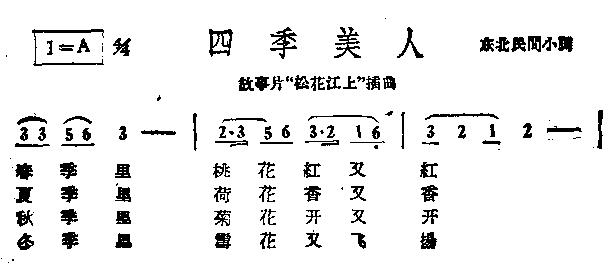 1=A 4/4 四季美人 东北民间小調
故事片“松花江上”插曲
3 3 5 6 3 — | 2·3 5 6 3·2 1 6 | 3 2 1 2 —
春季里 桃花紅又紅
夏季里 荷花香又香
秋季里 菊花开又开
冬季里 雪花又飞揚